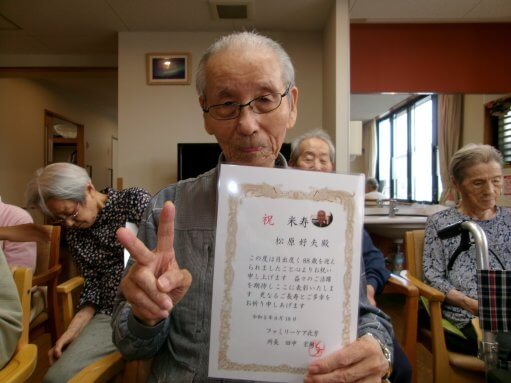 祝 米寿
松原好夫殿
この度は目出度く88歳を迎え
られましたことは、よりお祝い
申し上げます 益々のご活躍
を期待しここに表彰いたしま
す 更なるご長寿とご多幸を
お祈り申しあげます
ファミリーケア此方
所長 田中